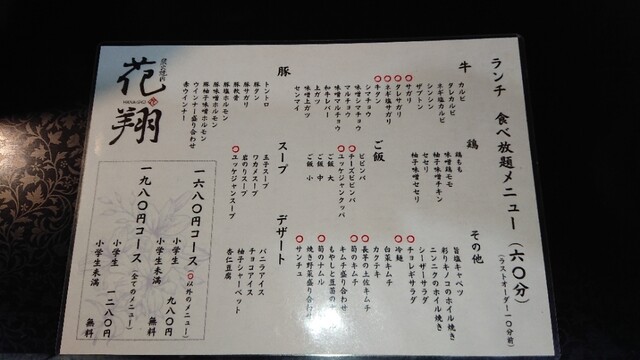 ランチ 食べ放題メニュー（六〇分）
（ラストオーダー一〇分前）
牛
カルビ
タレカルビ
ネギ塩カルビ
シンシン
ザブトン
○サガリ
○タレサガリ
○ネギ塩サガリ
○牛タン
シマチョウ
味噌シマチョウ
マルチョウ
味噌マルチョウ
和牛レバー
上ガツ
味噌上ガツ
センマイ
豚
トントロ
豚タン
豚サガリ
豚軟骨
豚塩ホルモン
豚味噌ホルモン
豚柚子味噌ホルモン
ウインナー盛り合わせ
赤ウインナー
鶏
鶏もも
味噌鶏モモ
柚子味噌チキン
セセリ
柚子味噌セセリ
ご飯
ビビンバ
○チーズビビンバ
○ユッケジャンクッパ
ご飯 大
ご飯 中
ご飯 小
スープ
玉子スープ
ワカメスープ
岩のりスープ
○ユッケジャンスープ
その他
旨塩キャベツ
彩りキノコのホイル焼き
ニンニクのホイル焼き
シーザーサラダ
○チョレギサラダ
○冷麺
白菜キムチ
カクテキ
○長芋の土佐キムチ
○筍のキムチ
キムチ盛り合わせ
もやしと豆苗の
○筍のナムル
焼き野菜盛り合わ
○サンチュ
デザート
バニラアイス
チョコアイス
柚子シャーベット
杏仁豆腐
花翔
HANA-SHO
一六八〇円コース（○以外のメニュー）
小学生 九八〇円
小学生未満 無料
一九八〇円コース（全てのメニュー）
小学生 一二八〇円
小学生未満 無料